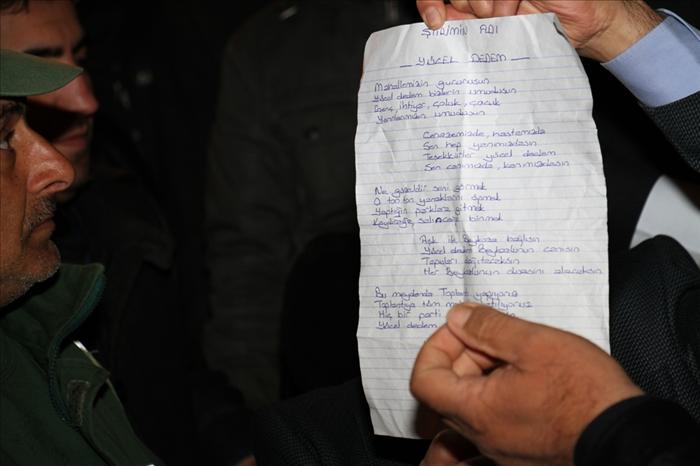 ŞİİRİMİN ADI
YÜCEL DEDEM
Mahallemizin gururusun
Yücel dedem bizlerin umudusun
Genç, ihtiyar, çoluk, çocuk
Yarınlarımızın umudusun
Cenazemizde, hastamızda
Sen hep yanımızdasın
Teşekkürler yücel dedem
Sen canımızda, kanımızdasın
Ne güzeldir seni görmek
O ton ton yanaklarını öpmek
Yaptığın parklara gitmek
Kaydırağa, salıncağa binmek
Aşk ile Beykoza bağlısın
Yücel dedem Beykozlunun canısın
Tapuları dağıtacaksın
Her Beykozlunun duasını alacaksın
Bu meydanda Toplantı yapıyoruz
Toplantıya tüm
Hiç bir parti
Yücel dedem